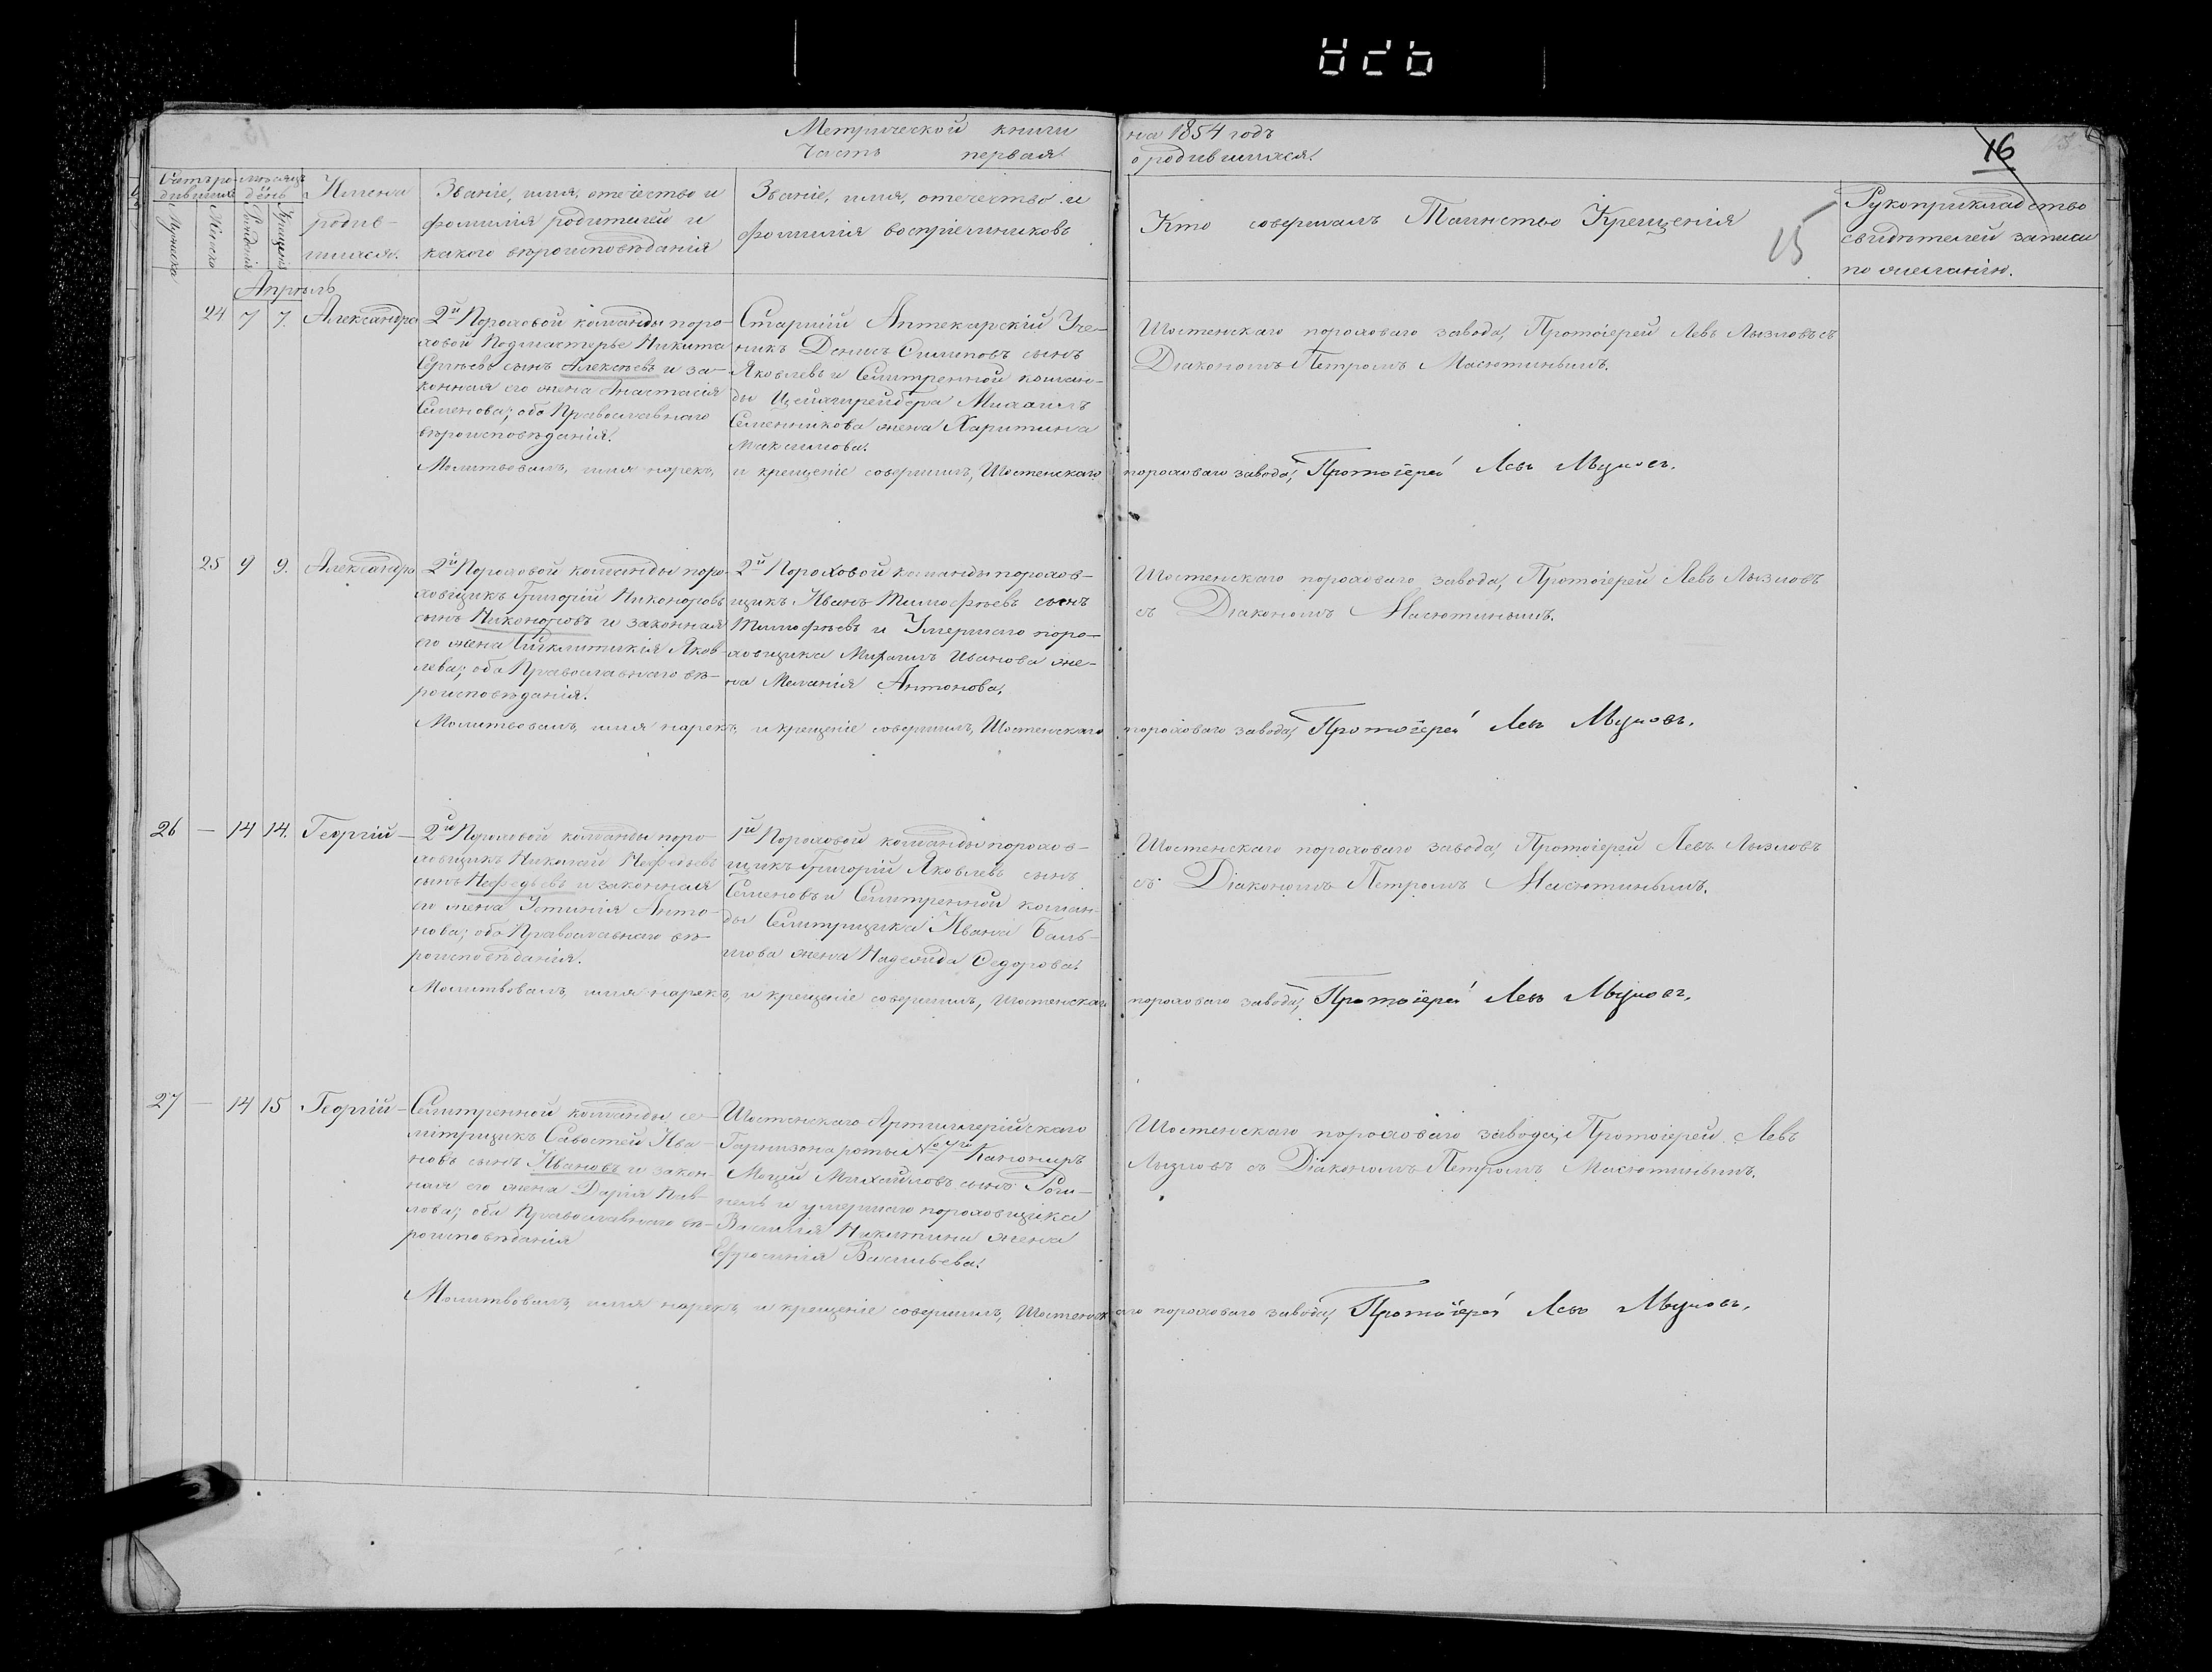 Метрической книги на 1854 годъ
Часть первая о родившихся.
16
15
Счетъ ро-
дившихся
Мужеска
Женска
мѣсяцъ и
день
Рожденія
Крещенія
Имена
родив-
шихся.
Званіе, имя, отечество и
фамилія родителей и
какого вѣроисповѣданія
Званіе, имя, отечество и
фамилія воспріемниковъ
Кто совершалъ Таинство Крещенія
Рукоприкладство
свидѣтелей записи
по желанію.
Апрѣль
24 7 7. Александра
2й Пороховой команды поро-
ховой Подмастерье Никита
Сергѣевъ сынъ Алексѣевъ и за-
конная его жена Анастасія
Семенова; оба Православнаго
вѣроисповѣданія.
Старшій Аптекарскій Уче-
никъ Денисъ Филиповъ сынъ
Яковлевъ и Селитренной коман-
ды Цейхшрейбера Михаила
Семенникова жена Харитина
Максимова.
Шостенскаго пороховаго завода, Протоіерей Левъ Лызловъ съ
Діакономъ Петромъ Масютинымъ.
Молитвовалъ, имя нарекъ, и крещеніе совершилъ, Шостенскаго пороховаго завода, Протоіерей Левъ Лызловъ.
25 9 9. Александра
2й Пороховой команды поро-
ховщикъ Григорій Никоноровъ
сынъ Никоноровъ и законная
его жена Яков-
лева; оба Православнаго вѣ-
роисповѣданія.
2й Пороховой команды порохов-
щикъ Иванъ Тимофѣевъ сынъ
Тимофѣевъ и Умершаго поро-
ховщика Михаила Иванова же-
на Меланія Антонова.
Шостенскаго пороховаго завода, Протоіерей Левъ Лызловъ
съ Діакономъ Масютинымъ.
Молитвовалъ, имя нарекъ, и крещеніе совершилъ, Шостенскаго пороховаго завода, Протоіерей Левъ Лызловъ.
26 — 14 14. Георгій —
2й Пороховой команды поро-
ховщикъ Николай Нефедьевъ
сынъ Нефедьевъ и законная
его жена Устинія Анто-
нова; оба Православнаго вѣ-
роисповѣданія.
1й Пороховой команды порохов-
щикъ Григорій Яковлевъ сынъ
Семеновъ и Селитренной коман-
ды Селитрщика Ивана
жена Надежда Федорова.
Шостенскаго пороховаго завода, Протоіерей Левъ Лызловъ
съ Діакономъ Петромъ Масютинымъ.
Молитвовалъ, имя нарекъ, и крещеніе совершилъ, Шостенскаго пороховаго завода, Протоіерей Левъ Лызловъ.
27 — 14 15 Георгій —
Селитренной команды се-
литрщикъ Савостей Ива-
новъ сынъ Ивановъ и закон-
ная его жена Дарія Пав-
лова; оба Православнаго вѣ-
роисповѣданія
Шостенскаго Артиллерійскаго
Гарнизона роты № 7го Канониръ
Михайловъ сынъ
и умершаго пороховщика
Василія Никитина жена
Ефросинія Васильева.
Шостенскаго пороховаго завода, Протоіерей Левъ
Лызловъ съ Діакономъ Петромъ Масютинымъ.
Молитвовалъ, имя нарекъ, и крещеніе совершилъ, Шостенскаго пороховаго завода, Протоіерей Левъ Лызловъ.